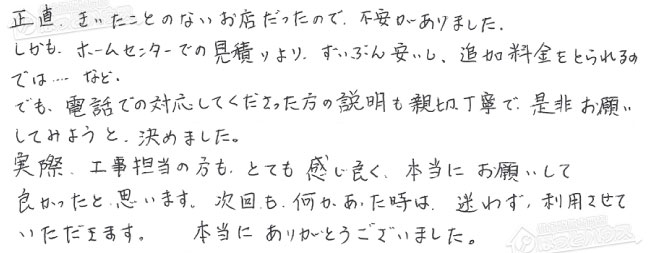 正直、きいたことのないお店だったので、不安がありました。
しかも、ホームセンターでの見積りより、ずいぶん安いし、追加料金をとられるの
では…など、
でも、電話での対応してくださった方の説明も親切丁寧で、是非お願い
してみようと、決めました。
実際、工事担当の方も、とても感じ良く、本当にお願いして
良かったと、思います。次回も、何かあった時は、迷わず、利用させて
いただきます。 本当にありがとうございました。